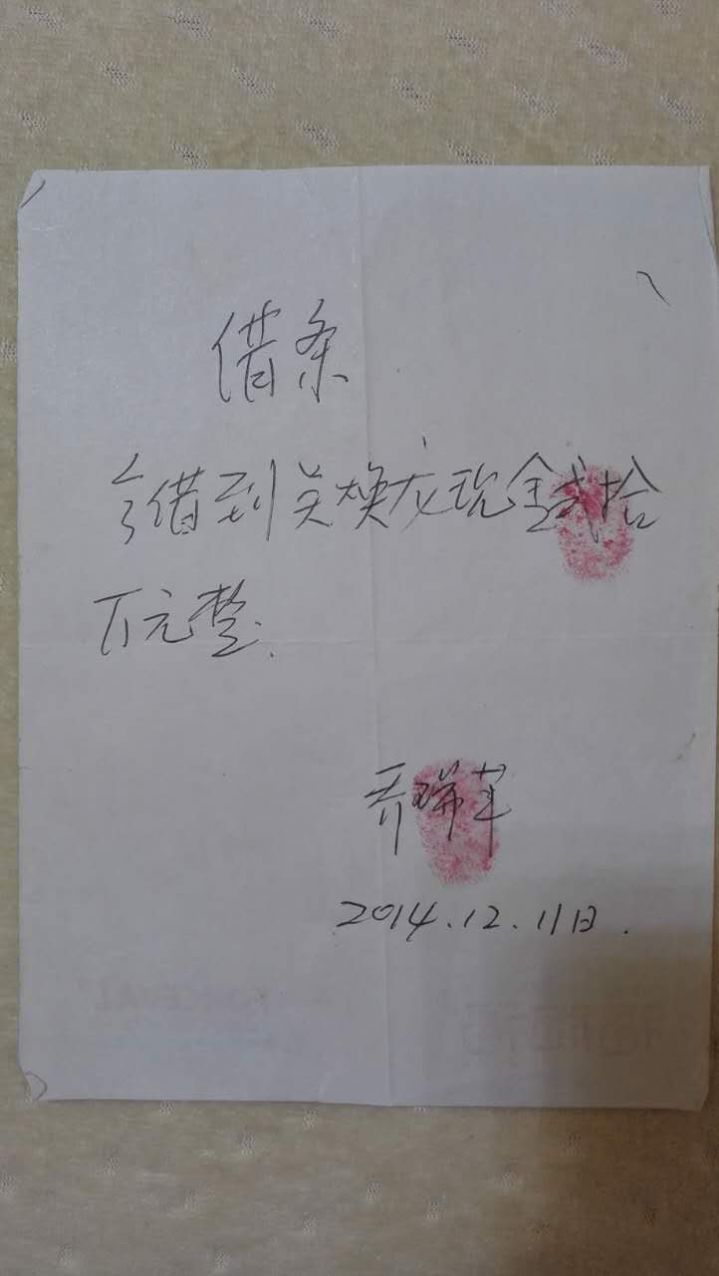 借条
今借到关焕龙现金贰拾
万元整.
乔瑞苹
2014.12.11日.